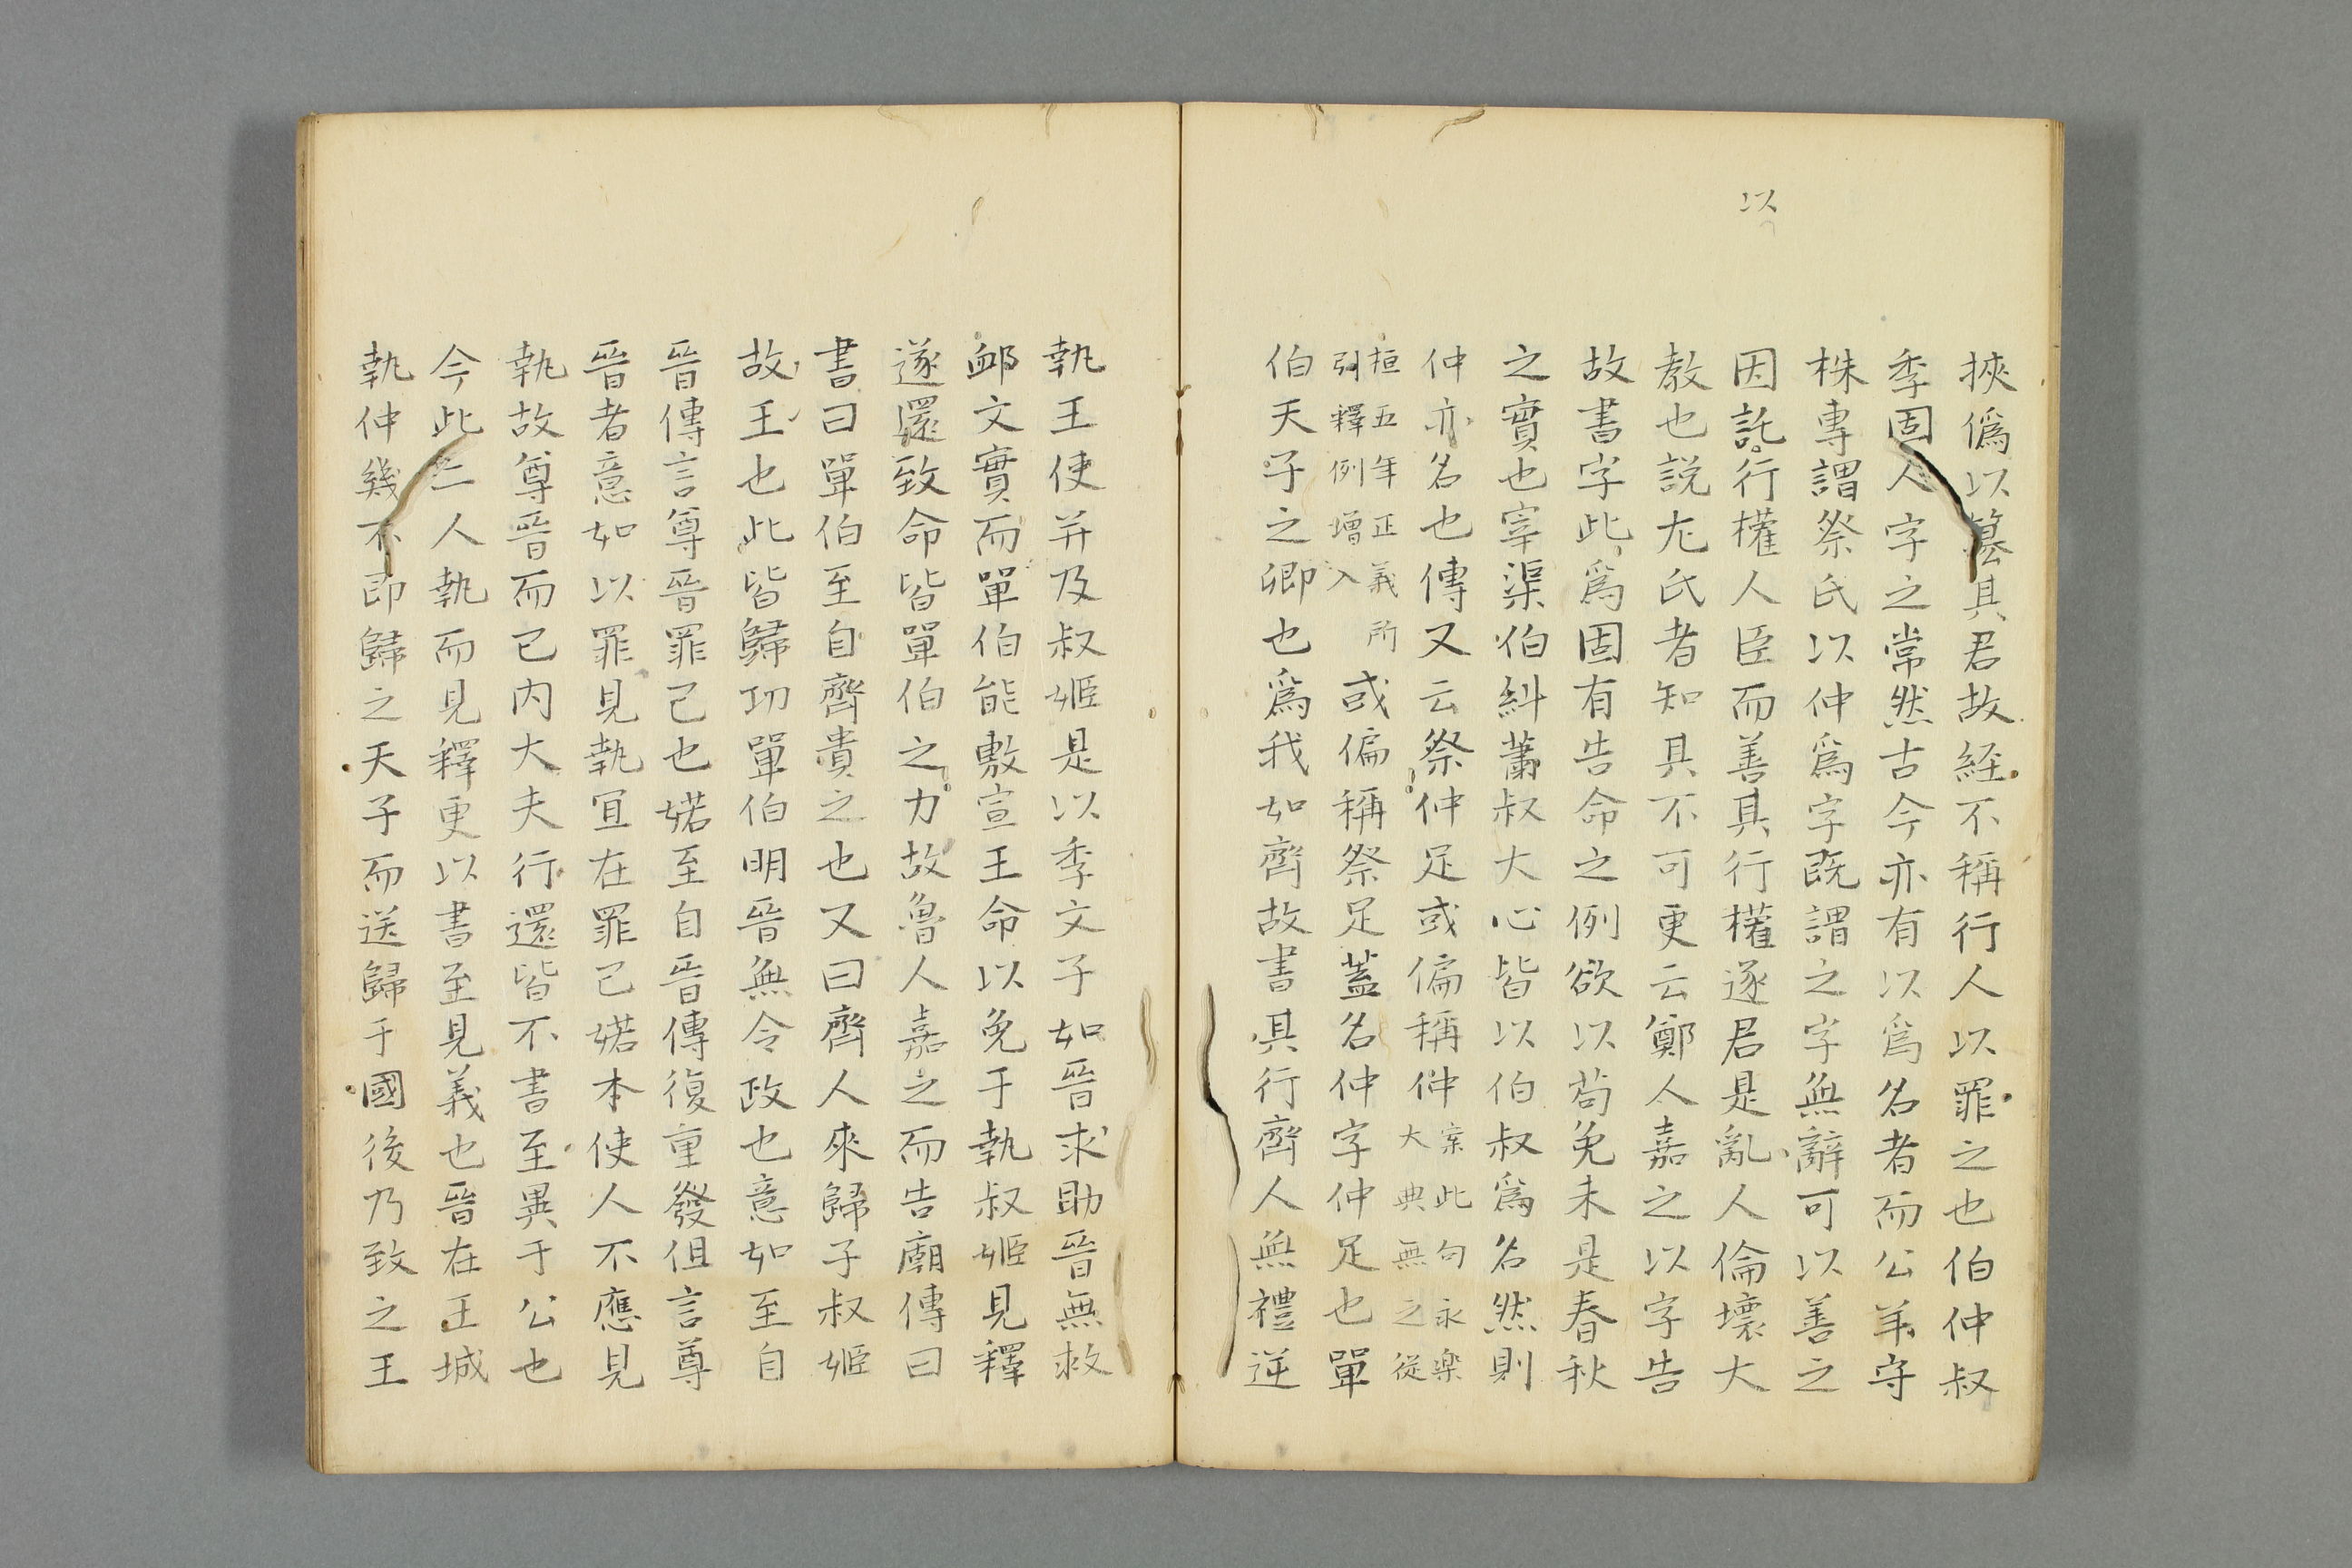 以
挾僞以簒其君故経不稱行人以罪之也伯仲叔
季固人字之常然古今亦有以爲名者而公羊守
株專謂祭氏以仲爲字既謂之字無辭可以善之
因託行權人臣而善其行權逐君是亂人倫壞大
教也説尤氏者知其不可更云鄭人嘉之以字告
故書字此爲固有告命之例欲以苟免未是春秋
之實也宰渠伯糾蕭叔大心皆以伯叔爲名然則
仲亦名也傳又云祭仲足或偏稱仲案此句永楽
大典無之從
桓五年正義所
引釋例增入或偏稱祭足蓋名仲字仲足也單
伯天子之卿也爲我如齊故書其行齊人無禮逆
執王使并及叔姬是以季文子如晉求助晉無救
邮文實而單伯能敷宣王命以免于執叔姬見釋
遂還致命皆單伯之力故魯人嘉之而告廟傳曰
書曰單伯至自齊貴之也又曰齊人來歸子叔姬
故王也此皆歸功單伯明晉無令政也意如至自
晉傳言尊晉罪己也婼至自晉傳復重發但言尊
晉者意如以罪見執宜在罪己婼本使人不應見
執故尊晉而已内大夫行還皆不書至異于公也
今此二人執而見釋更以書至見義也晉在王城
執仲幾不即歸之天子而送歸于國後乃致之王